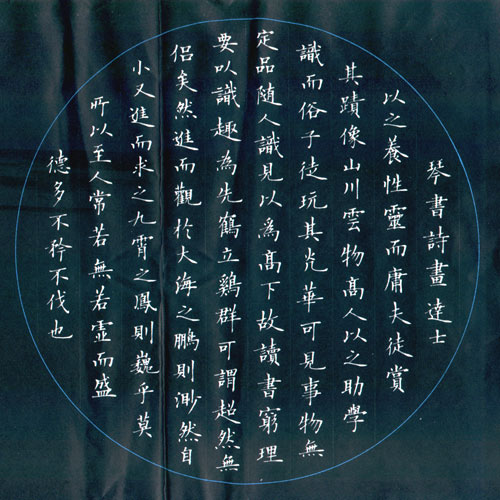 琴書詩畫達士
以之養性靈而庸夫徒賞
其蹟像山川雲物髙人以之助學
識而俗子徒玩其光華可見事物無
定品隨人識見以爲髙下故讀書窮理
要以識趣為先鶴立鷄群可謂超然無
侣矣然進而觀扵大海之鵬則渺然自
小又進而求之九霄之鳳則巍乎莫
所以至人常若無若虛而盛
德多不矜不伐也